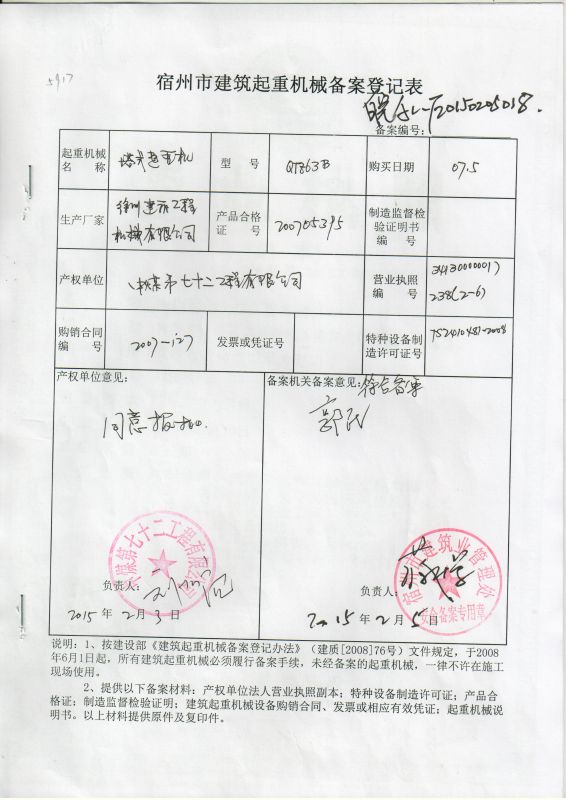 5917
宿州市建筑起重机械备案登记表
备案编号：
20150205018.
起重机械名称 塔式起重机 型号 QTZ63B 购买日期 07.5
生产厂家 徐州建筑工程机械有限公司 产品合格证号 200705395 制造监督检验证明书编号
产权单位 中煤第七十二工程有限公司 营业执照编号 341300000017238(2-6)
购销合同编号 2007-127 发票或凭证号 特种设备制造许可证号 TS2410481-2008
产权单位意见：
同意报批.
备案机关备案意见：符合备案
中煤第七十二工程有限公司
宿州市建筑业管理处
安全备案专用章
负责人：
2015年2月3日
负责人：
2015年2月5日
说明：1、按建设部《建筑起重机械备案登记办法》（建质[2008]76号）文件规定，于2008
年6月1日起，所有建筑起重机械必须履行备案手续，未经备案的起重机械，一律不许在施工
现场使用。
2、提供以下备案材料：产权单位法人营业执照副本；特种设备制造许可证；产品合
格证；制造监督检验证明；建筑起重机械设备购销合同、发票或相应有效凭证；起重机械说
明书。以上材料提供原件及复印件。